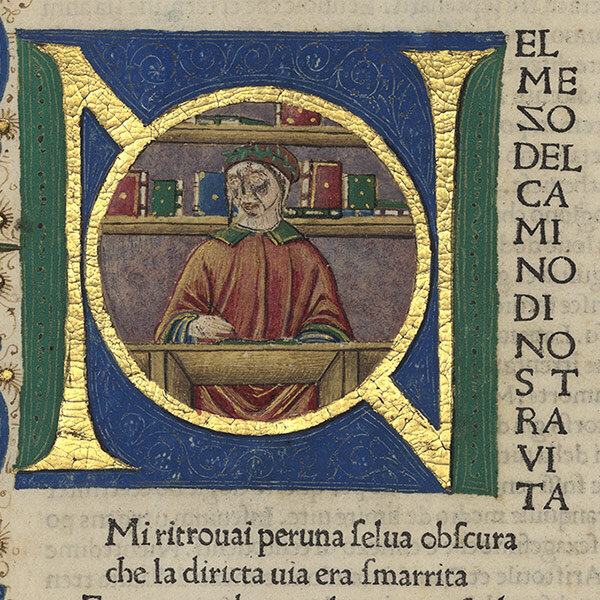 N
EL
ME
ZO
DEL
CA
MI
NO
DI
NO
ST
RA
VI
TA
Mi ritrouai per una ſelua obſcura
che la diricta uia era ſmarrita